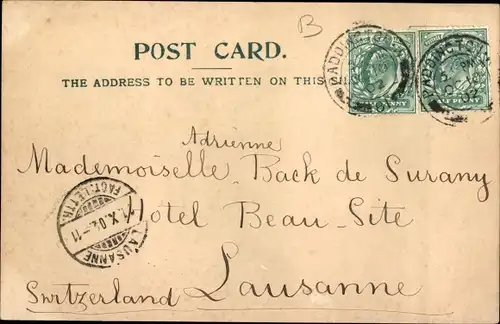 B
POST CARD.
THE ADDRESS TO BE WRITTEN ON THIS
PADDINGTON
PADDINGTON
Adrienne
Mademoiselle Back de Surany
Hotel Beau-Site
Lausanne
Switzerland
LAUSANNE
X.02-11
FACT. LETTR.